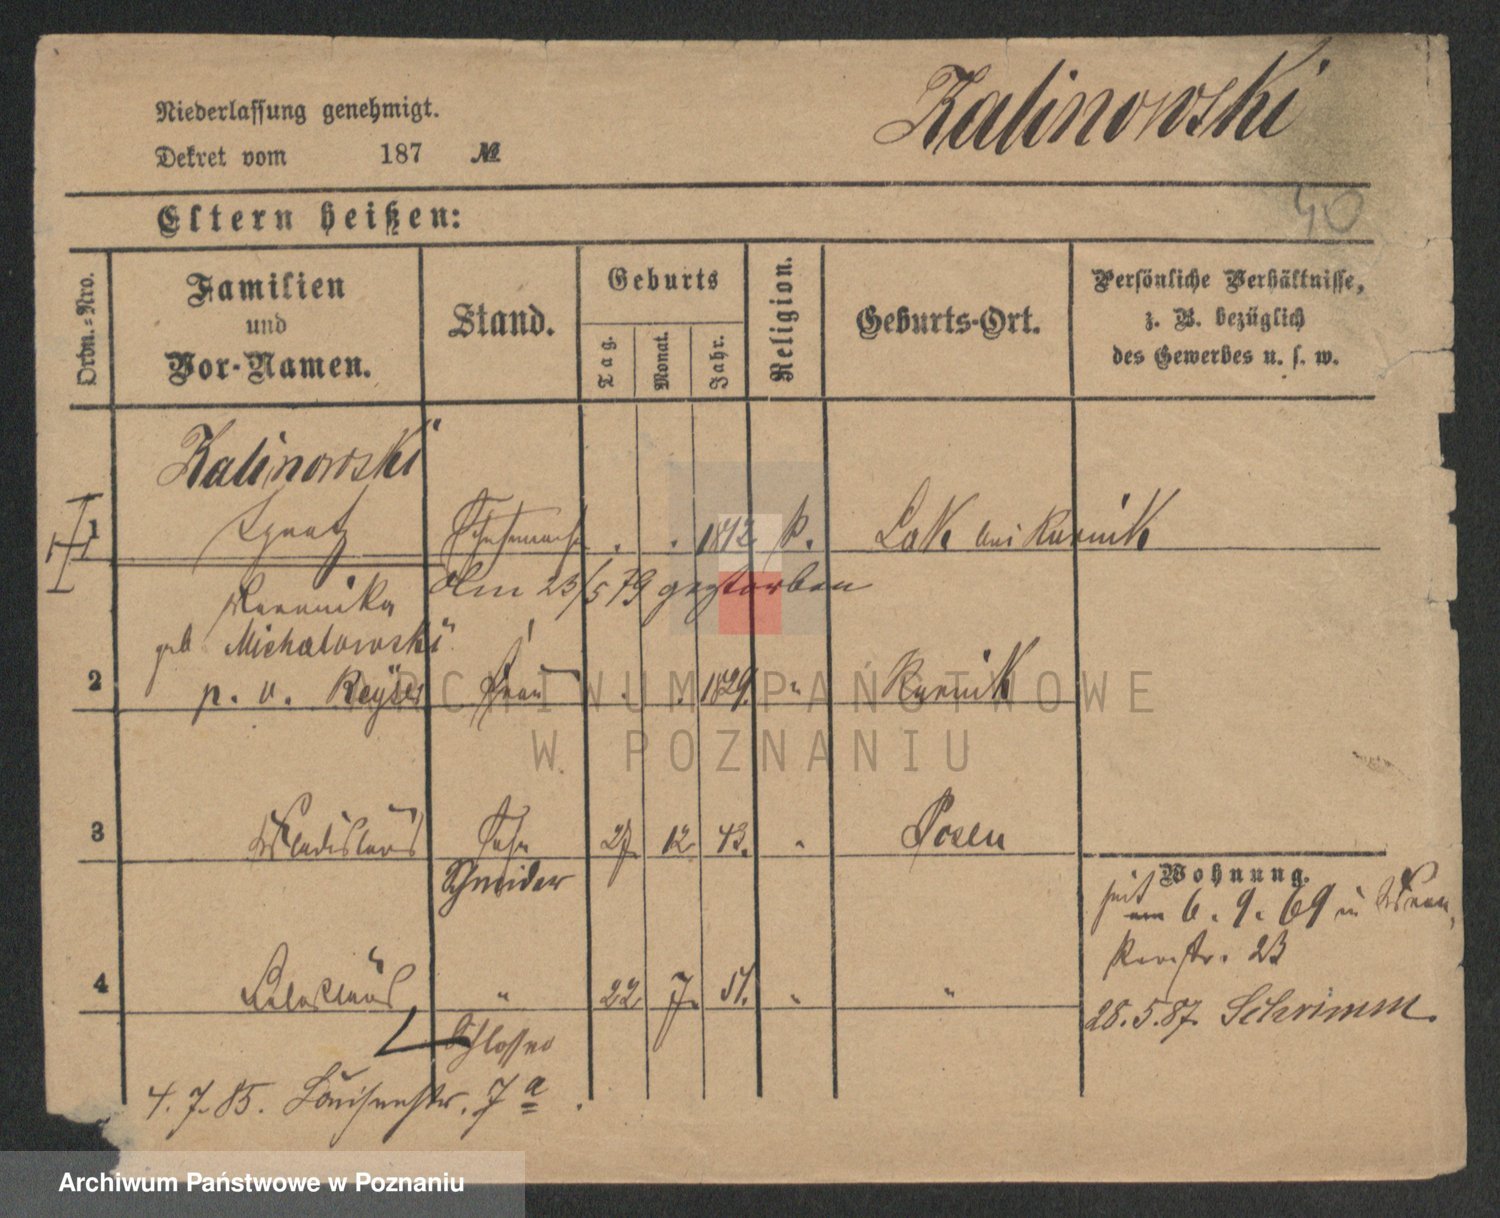 Kalinowski
Niederlassung genehmigt.
Dekret vom 187 №
40
Eltern heißen:
Ordn.=Nro.
Familien
und
Vor-Namen.
Stand.
Geburts
Tag.
Monat.
Jahr.
Religion.
Geburts-Ort.
Persönliche Verhältnisse,
z. B. bezüglich
des Gewerbes u. s. w.
Kalinowski
1 Ignatz Schuhmacher . . 1812 k. Lok bei Kurnik
Am 23/5 79 gestorben
Veronika
geb Michalowski
2 p. v. Frau . . 1829. " Kurnik
3 Wladislaus Sohn 27 12 43. " Posen
Schneider
Wohnung.
seit am 6. 9. 69 in
23
4 " 22 7. 51. " "
28.5.87. Schrimm.
Schlosser
4. 7. 85. Louisenstr. 7 a
ARCHIWUM PAŃSTWOWE
W POZNANIU
Archiwum Państwowe w Poznaniu